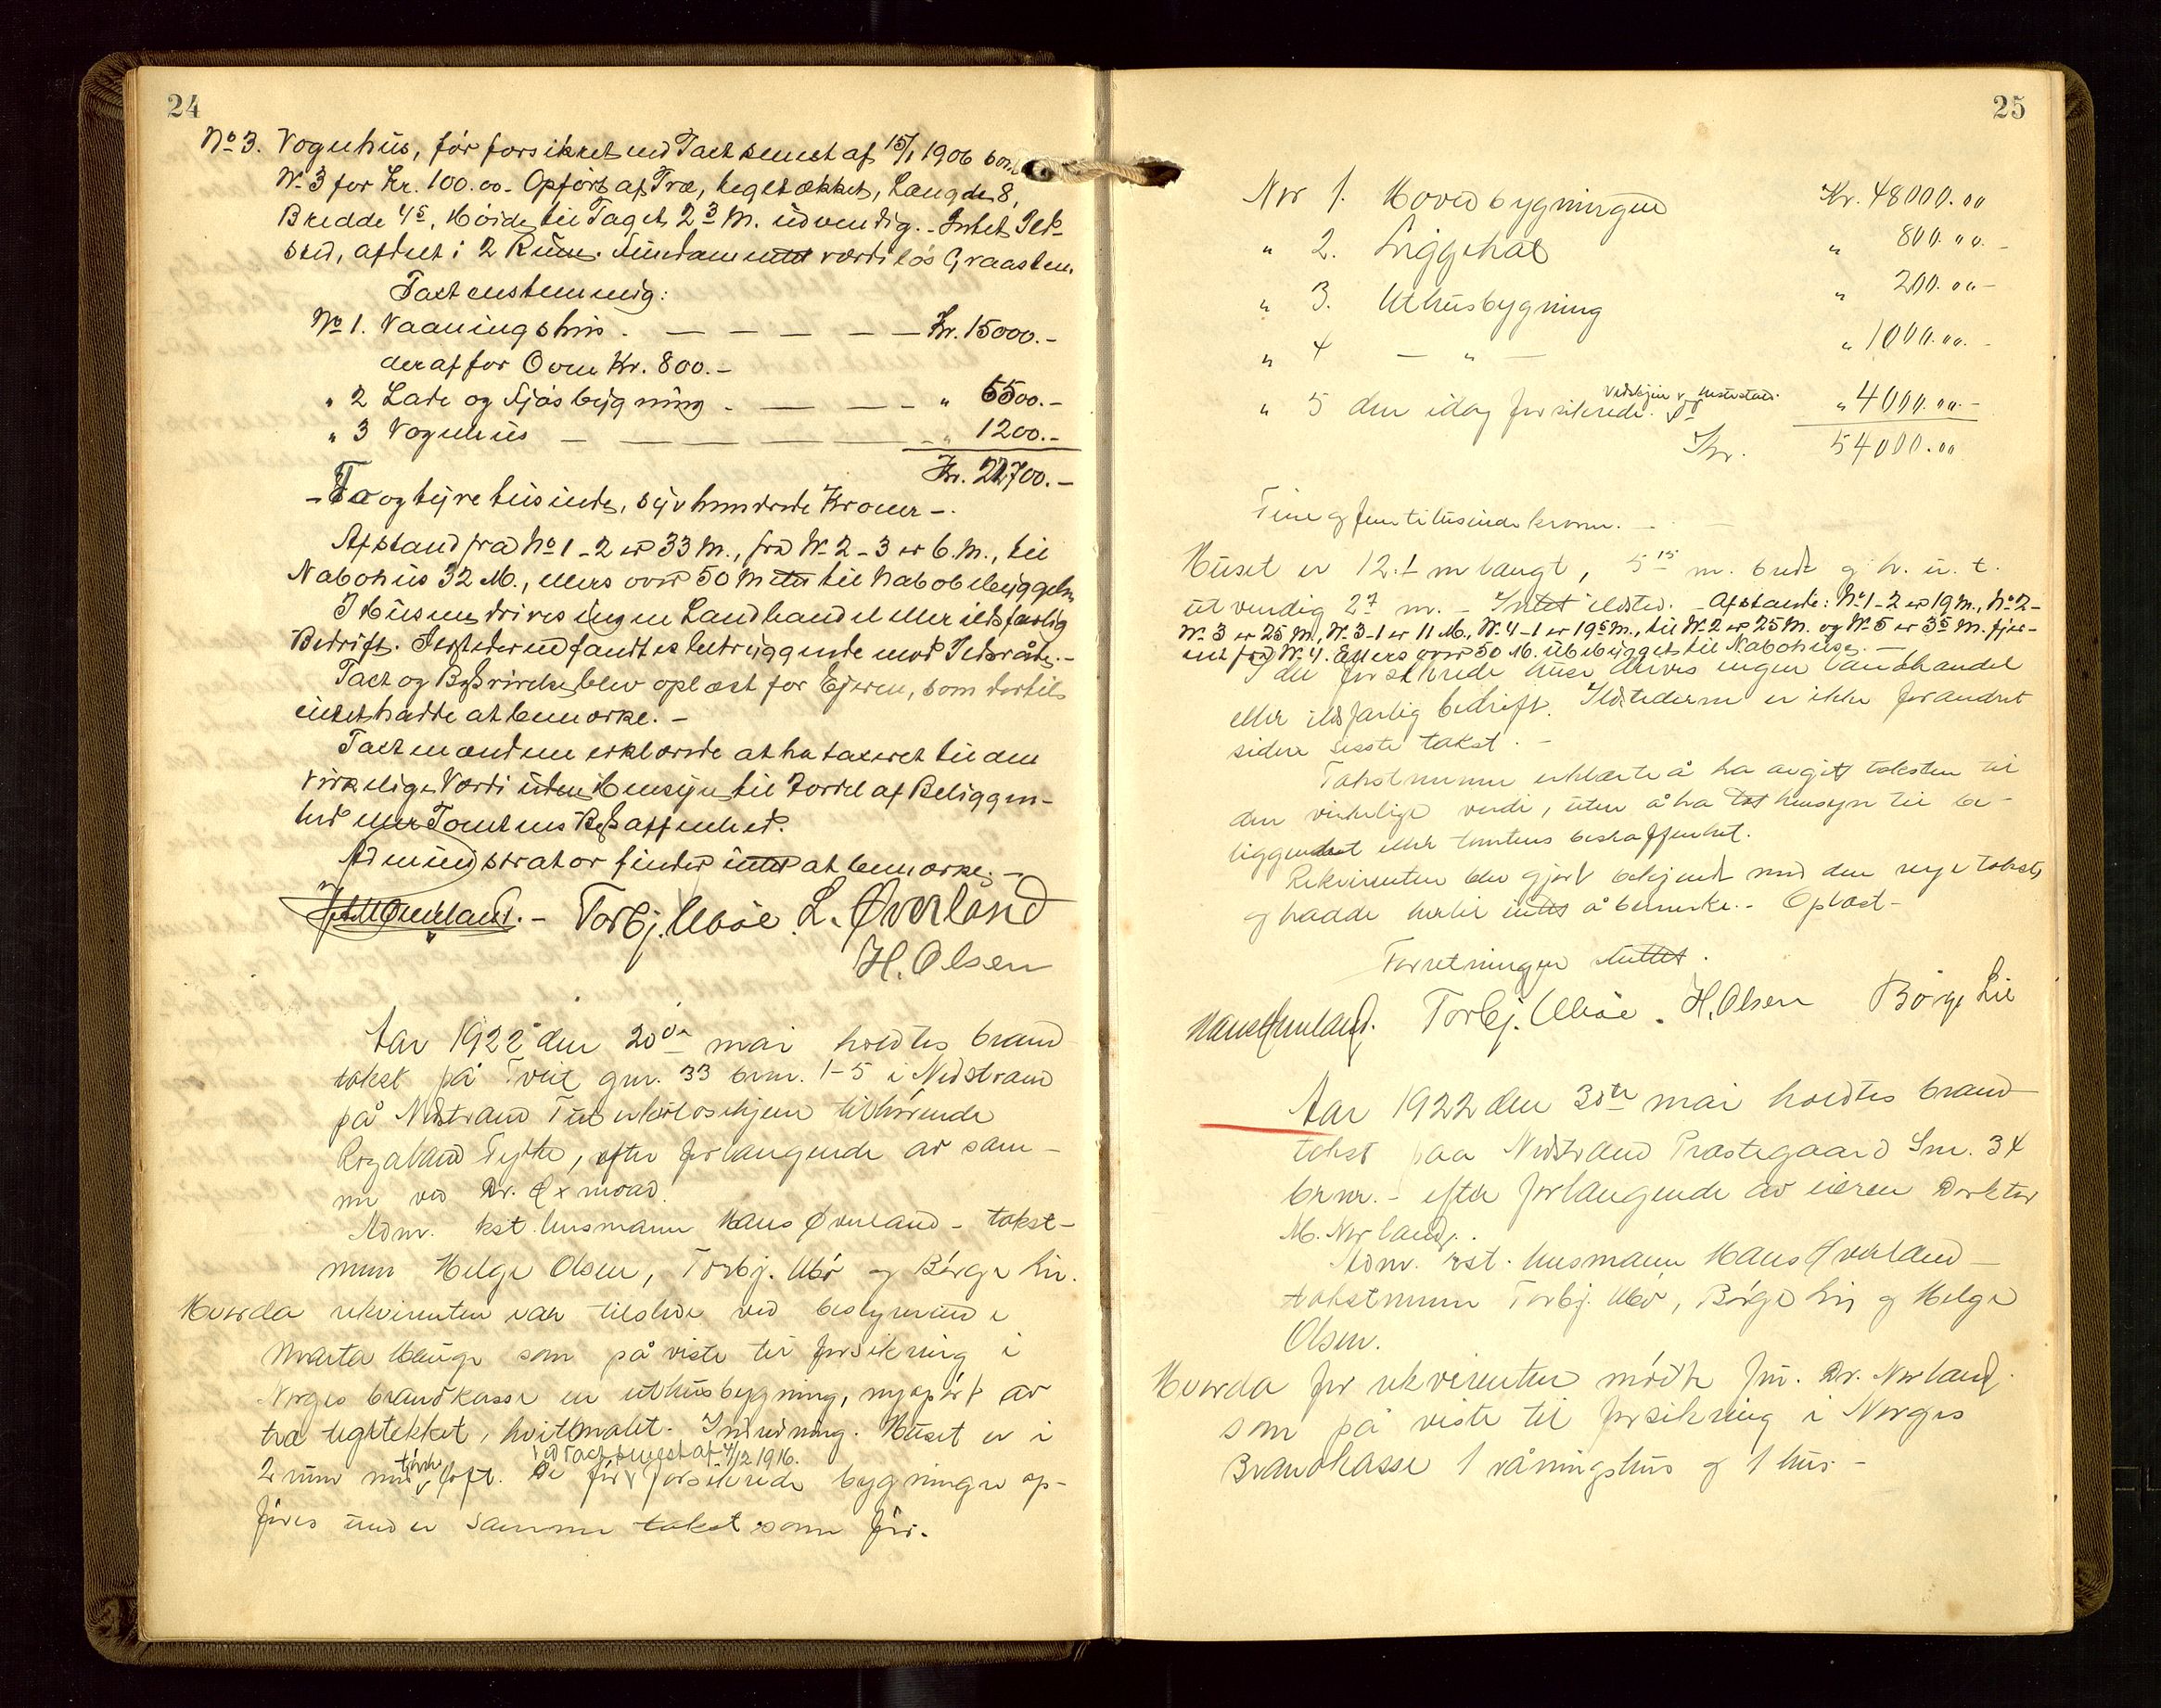 24
No 3. Vognhus, før forsikret ved Taxt senest af 15/1 1906 som
No 3 for Kr. 100.00 - Opført af Træ, tegltækket, Længde 8,
Bredde 4 5, Høide til Taget 2 3 M. udvendig. - Intet Ild-
sted, afdelt i 2 Rum. Fundament værdiløs Graasten.
Taxt enstemmig:
No 1. Vaaningshus . — — — — — Kr. 15000.-
deraf for Ovne Kr. 800.-
" 2 Lade og Fjøsbygning . — — — - " 5500.-
" 3 Vognhus — — — — — " 1200.-
Kr. 21700.-
- En og tyve tusinde, syv hundrede Kroner -.
Afstand fra No 1 - 2 er 33 M., fra No 2 - 3 er 6. M., til
Nabohus 32 M., ellers over 50 Meter til Nabobebyggelse
I Husene drives ingen Landhandel eller ildsfarlig
Bedrift. Ildstederne fandtes betryggende mod Ildsvåde. -
Taxt og Beskrivelse blev oplæst for Ejeren, som dertil
intet hadde at bemærke. -
Taxtmændene erklærede at ha taxeret til den
virkelige Værdi uden Hensyn til Fordel af Beliggen-
hed eller Tomtens Beskaffenhed.
Administrator finder intet at bemærke. -
Torbj. Ubøe L. Øverland
H. Olsen
Aar 1922 den 30de mai holdtes brand
takst på Tveit gnr. 33 brnr. 1-5 i Nedstrand
på Nedstrand Tuberkulosehjem tilhørende
Rogaland Fylke, efter forlangende av sam-
me ved Dr. Exmoad.
Adm. kst. lensmann Hans Øverland - takst-
menn Helge Olsen, Torbj. Ubø og Børge Lie.
Hvorda rekvirenten var tilstede ved bestyrerinde
Marta Hauge som påviste til forsikring i
Norges brandkasse en uthusbygning, nyopført av
træ teglstekket, hvitmalet. Indredning. Huset er i
2 rum med tørke loft. De før ved Taxt senest af 4/12 1916. forsikrede bygninger op-
føres under samme takst som før.
25
Nr 1. Hovedbygningen Kr. 48000.00
" 2. Liggehal " 800.00. -
" 3. Uthusbygning " 200.00 -
" 4 — " — " 1000.00. -
" 5 den idag forsikrede. Vedskjul og hestestald. " 4000.00. -
Kr. 54000.00
Fire og femtitusinde kroner. -
Huset er 12.1 m langt, 5 15 m. bredt og h. u. t.
utvendig 2 7 m. - Intet ildsted. - Afstande: No 1 - 2 er 19 M., No 2 -
No 3 er 25 M., No 3 - 1 er 11 M., No 4 - 1 er 19 5 M., til No 2 er 25 M. og No 5 er 3 5 M. fjer-
net fra No 4. Ellers over 50 M. ubebygget til Nabohuse. -
I de forsikrede huse drives ingen landhandel
eller ildsfarlig bedrift. Ildstederne er ikke forandret
siden sisste takst. -
Takstmenne erklærte å ha avgit taksten til
den virkelige verdi, uten å ha tat hensyn til be-
liggenhet eller tomtens beskaffenhet.
Rekvirenten blev gjort bekjendt med den nye takst,
og hadde hertil intet å bemerke. - Oplæst -
Forretningen sluttet.
Hans Øverland. Torbj. Ubøe. H. Olsen Børge Lie
Aar 1922 den 30te mai holdtes brand
takst paa Nedstrand Præstegaard Gnr. 34
brnr. - efter forlangende av eieren Doktor
M. Norland.
Adm. kst. lensmann Hans Øverland -
takstmenn Torbj. Ubø, Børge Lie og Helge
Olsen.
Hvorda for rekvirenten mødte fru. Dr. Norland.
som på viste til forsikring i Norges
Brandkasse 1 våningshus og 1 hus -